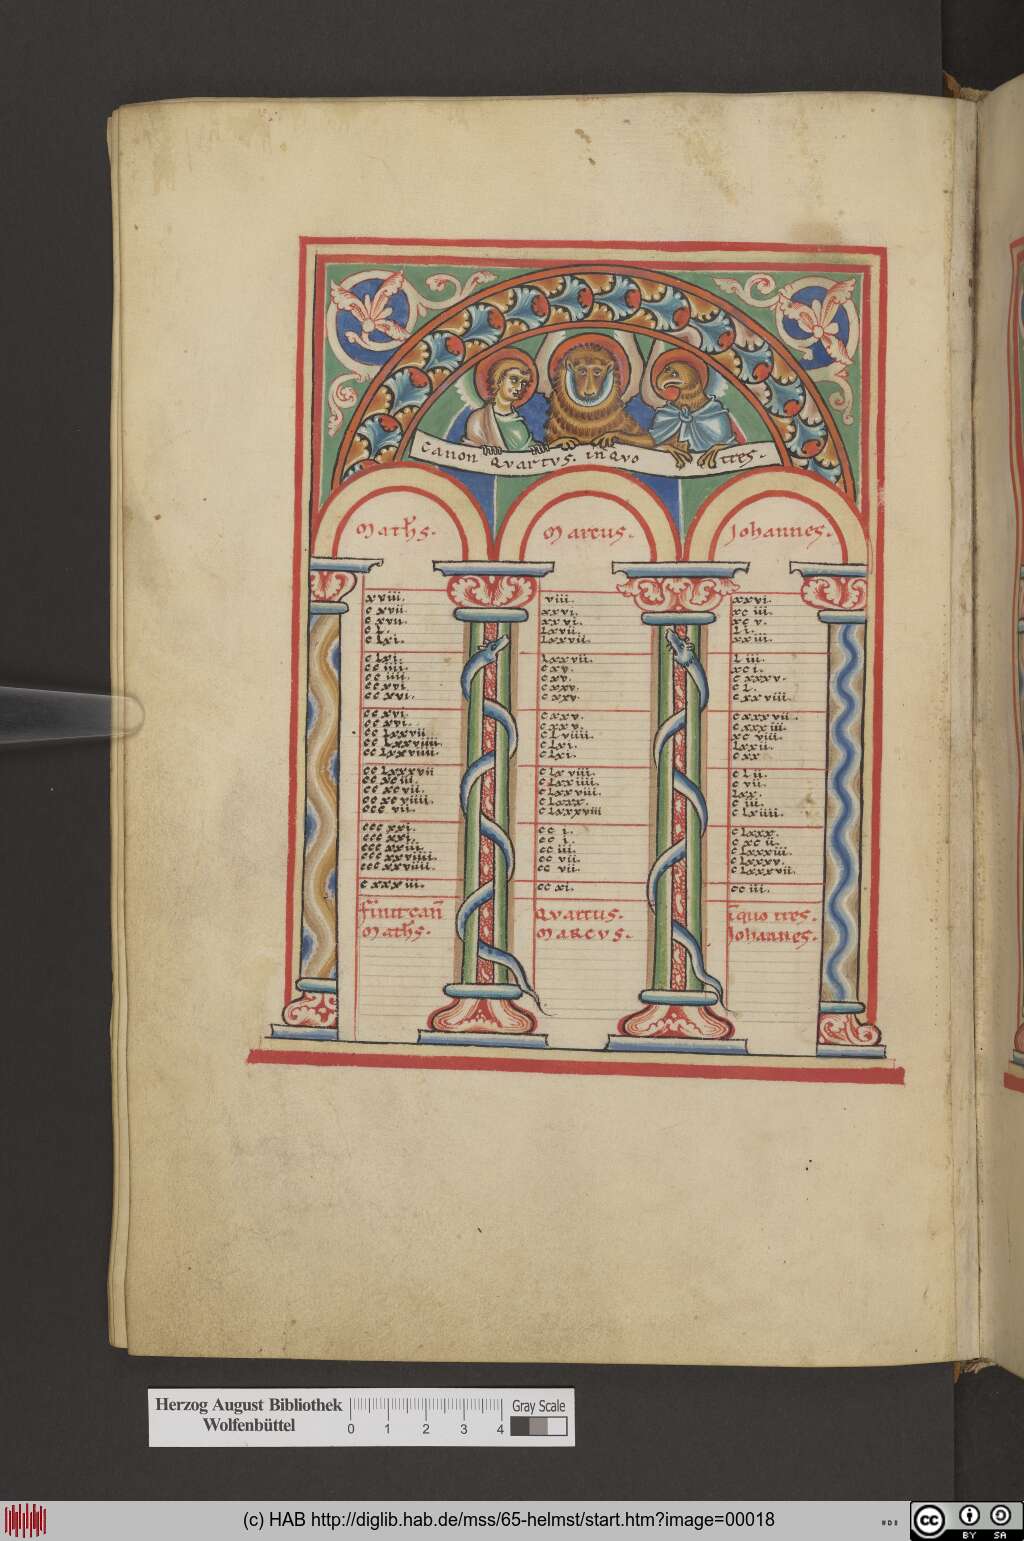 canon Quartus. in Quo tres.
Maths. Marcus. Johannes.
xviii. viii. xxvi.
c xvii. xxvi. xc iii.
c xvii. xxvi. xc v.
c l. lxvii. li.
c lxi. lxxvii. xxiii.
c lxi. lxxvii. l iii.
cc iiii. c xv. xc i.
cc iiii. c xv. c xxxv.
cc xvi. c xxv. c l.
cc xvi. c xxv. c xxviii.
cc xvi. c xxv. c xxxvii.
cc xvi. c xxv. c xxxiii.
cc lxxvii c lviiii. xc viii.
cc lxxviiii c lxi. lxxii.
cc lxxviiii. c lxi. c xx
cc lxxxvii c lxviii. c lii.
cc xc iii. c lxxiiii. c vii.
cc xc vii. c lxxviii. lxx.
cc xc viiii. c lxxx. c iii.
ccc vii. c lxxxviii c lxiiii.
ccc xxi. cc i. c lxxx.
ccc xxi. cc i. c xc ii.
ccc xxiii. cc iii. c lxxxiii.
ccc xxviiii. cc vii. c lxxxv.
ccc xxviiii. cc vii. c lxxxvii.
c xxxiii. cc xi. cc iii.
finit can̄ Quartus. īquo tres.
Maths. Marcus. Johannes.
Herzog August Bibliothek
Wolfenbüttel
0 1 2 3 4
Gray Scale
(c) HAB http://diglib.hab.de/mss/65-helmst/start.htm?image=00018
cc BY SA